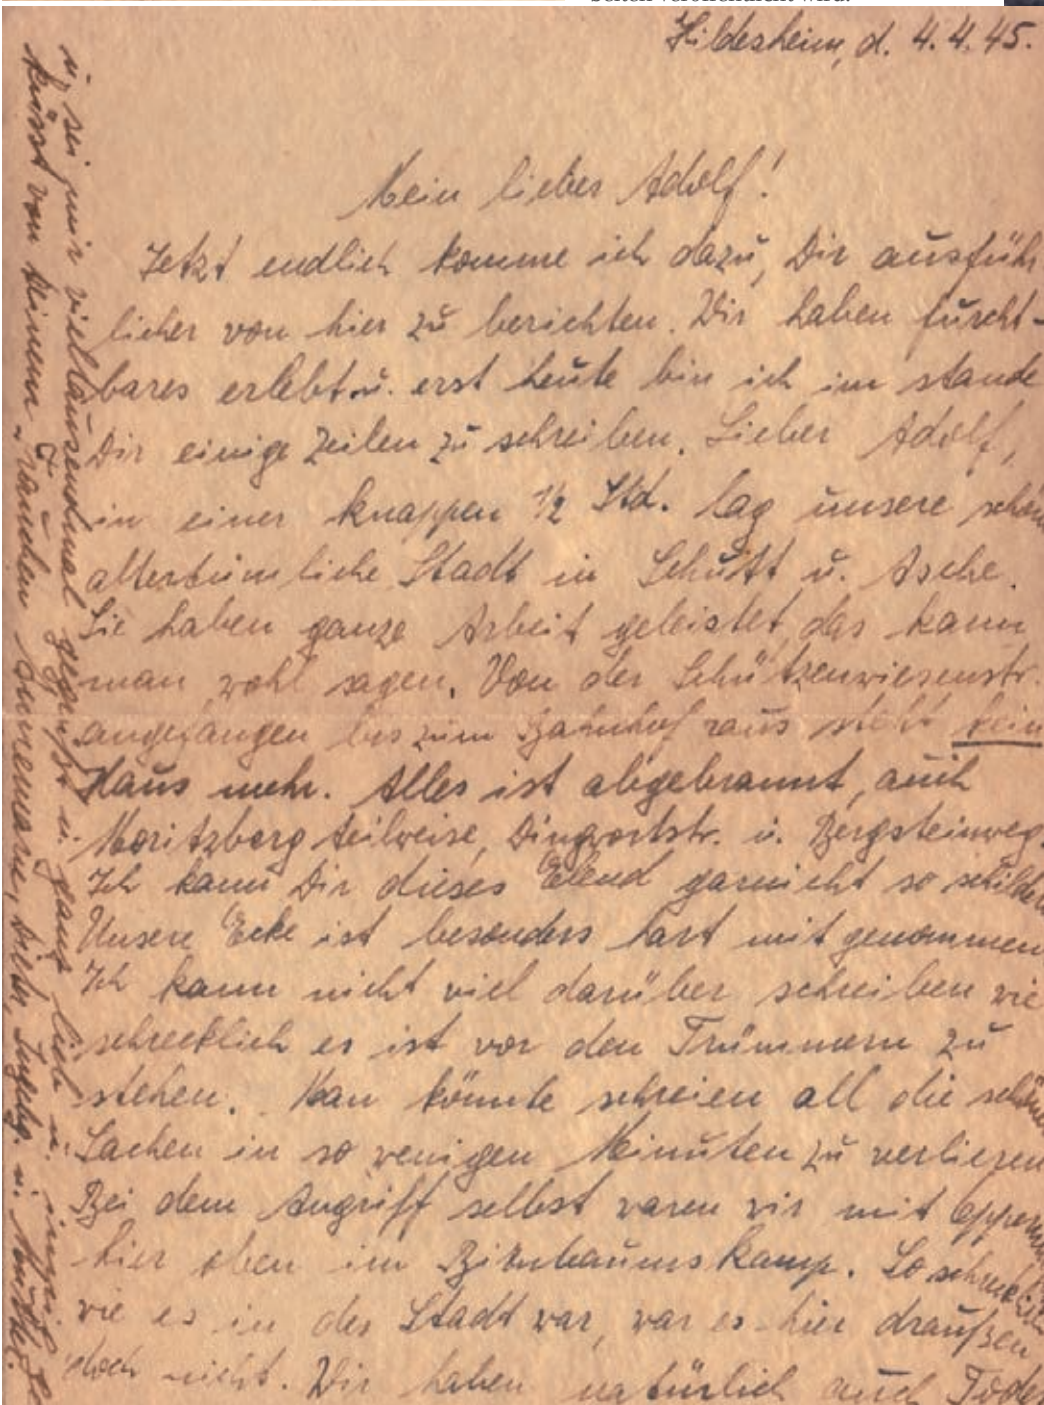 Seiten veröffentlicht wird.
Hildesheim, d. 4.4.45.
Mein lieber Adolf!
Jetzt endlich komme ich dazu, Dir ausführ
licher von hier zu berichten. Wir haben furcht-
bares erlebt u. erst heute bin ich im stande
Dir einige Zeilen zu schreiben. Lieber Adolf,
in einer knappen 1/2 Std. lag unsere schön
altertümliche Stadt in Schutt u. Asche.
Sie haben ganze Arbeit geleistet, das kann
man wohl sagen. Von der Schützenwiesenstr.
angefangen bis zum Bahnhof raus steht kein
Haus mehr. Alles ist abgebrannt, auch
Moritzberg teilweise, Dingworthstr. u. Bergsteinweg.
Ich kann Dir dieses Elend garnicht so schildern
Unsere Ecke ist besonders hart mit genommen
Ich kann nicht viel darüber schreiben wie
schrecklich es ist vor den Trümmern zu
stehen. Man könnte schreien all die schönen
Sachen in so wenigen Minuten zu verlieren
Bei dem Angriff selbst waren wir mit
hier oben im Birnbaumskamp. So schrecklich
wie es in der Stadt war, war es hier draußen
doch nicht. Wir haben natürlich auch Todes
u. sei mir vieltausendmal gegrüßt u. ganz lieb u. innig
geküsst von Deinem Frauchen Annemarie, Dieter, Ingebg. u.